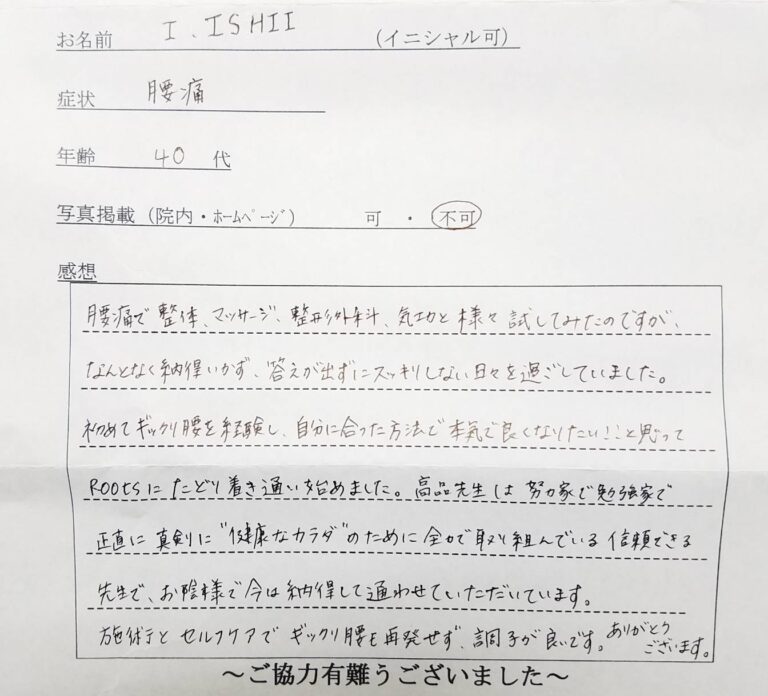 お名前 I.ISHII (イニシャル可)
症状 腰痛
年齢 40 代
写真掲載(院内・ﾎｰﾑﾍﾟｰｼﾞ) 可 ・ 不可
感想
腰痛で整体、マッサージ、整形外科、気功と様々試してみたのですが、
なんとなく納得いかず、答えが出ずにスッキリしない日々を過ごしていました。
初めてギックリ腰を経験し、自分に合った方法で本気で良くなりたい!!と思って
ROOtSにたどり着き通い始めました。高品先生は努力家で勉強家で
正直に真剣に"健康なカラダ"のために全力で取り組んでいる信頼できる
先生で、お陰様で今は納得して通わせていただいています。
施術とセルフケアでギックリ腰も再発せず、調子が良いです。ありがとう
ございます。
~ご協力有難うございました~